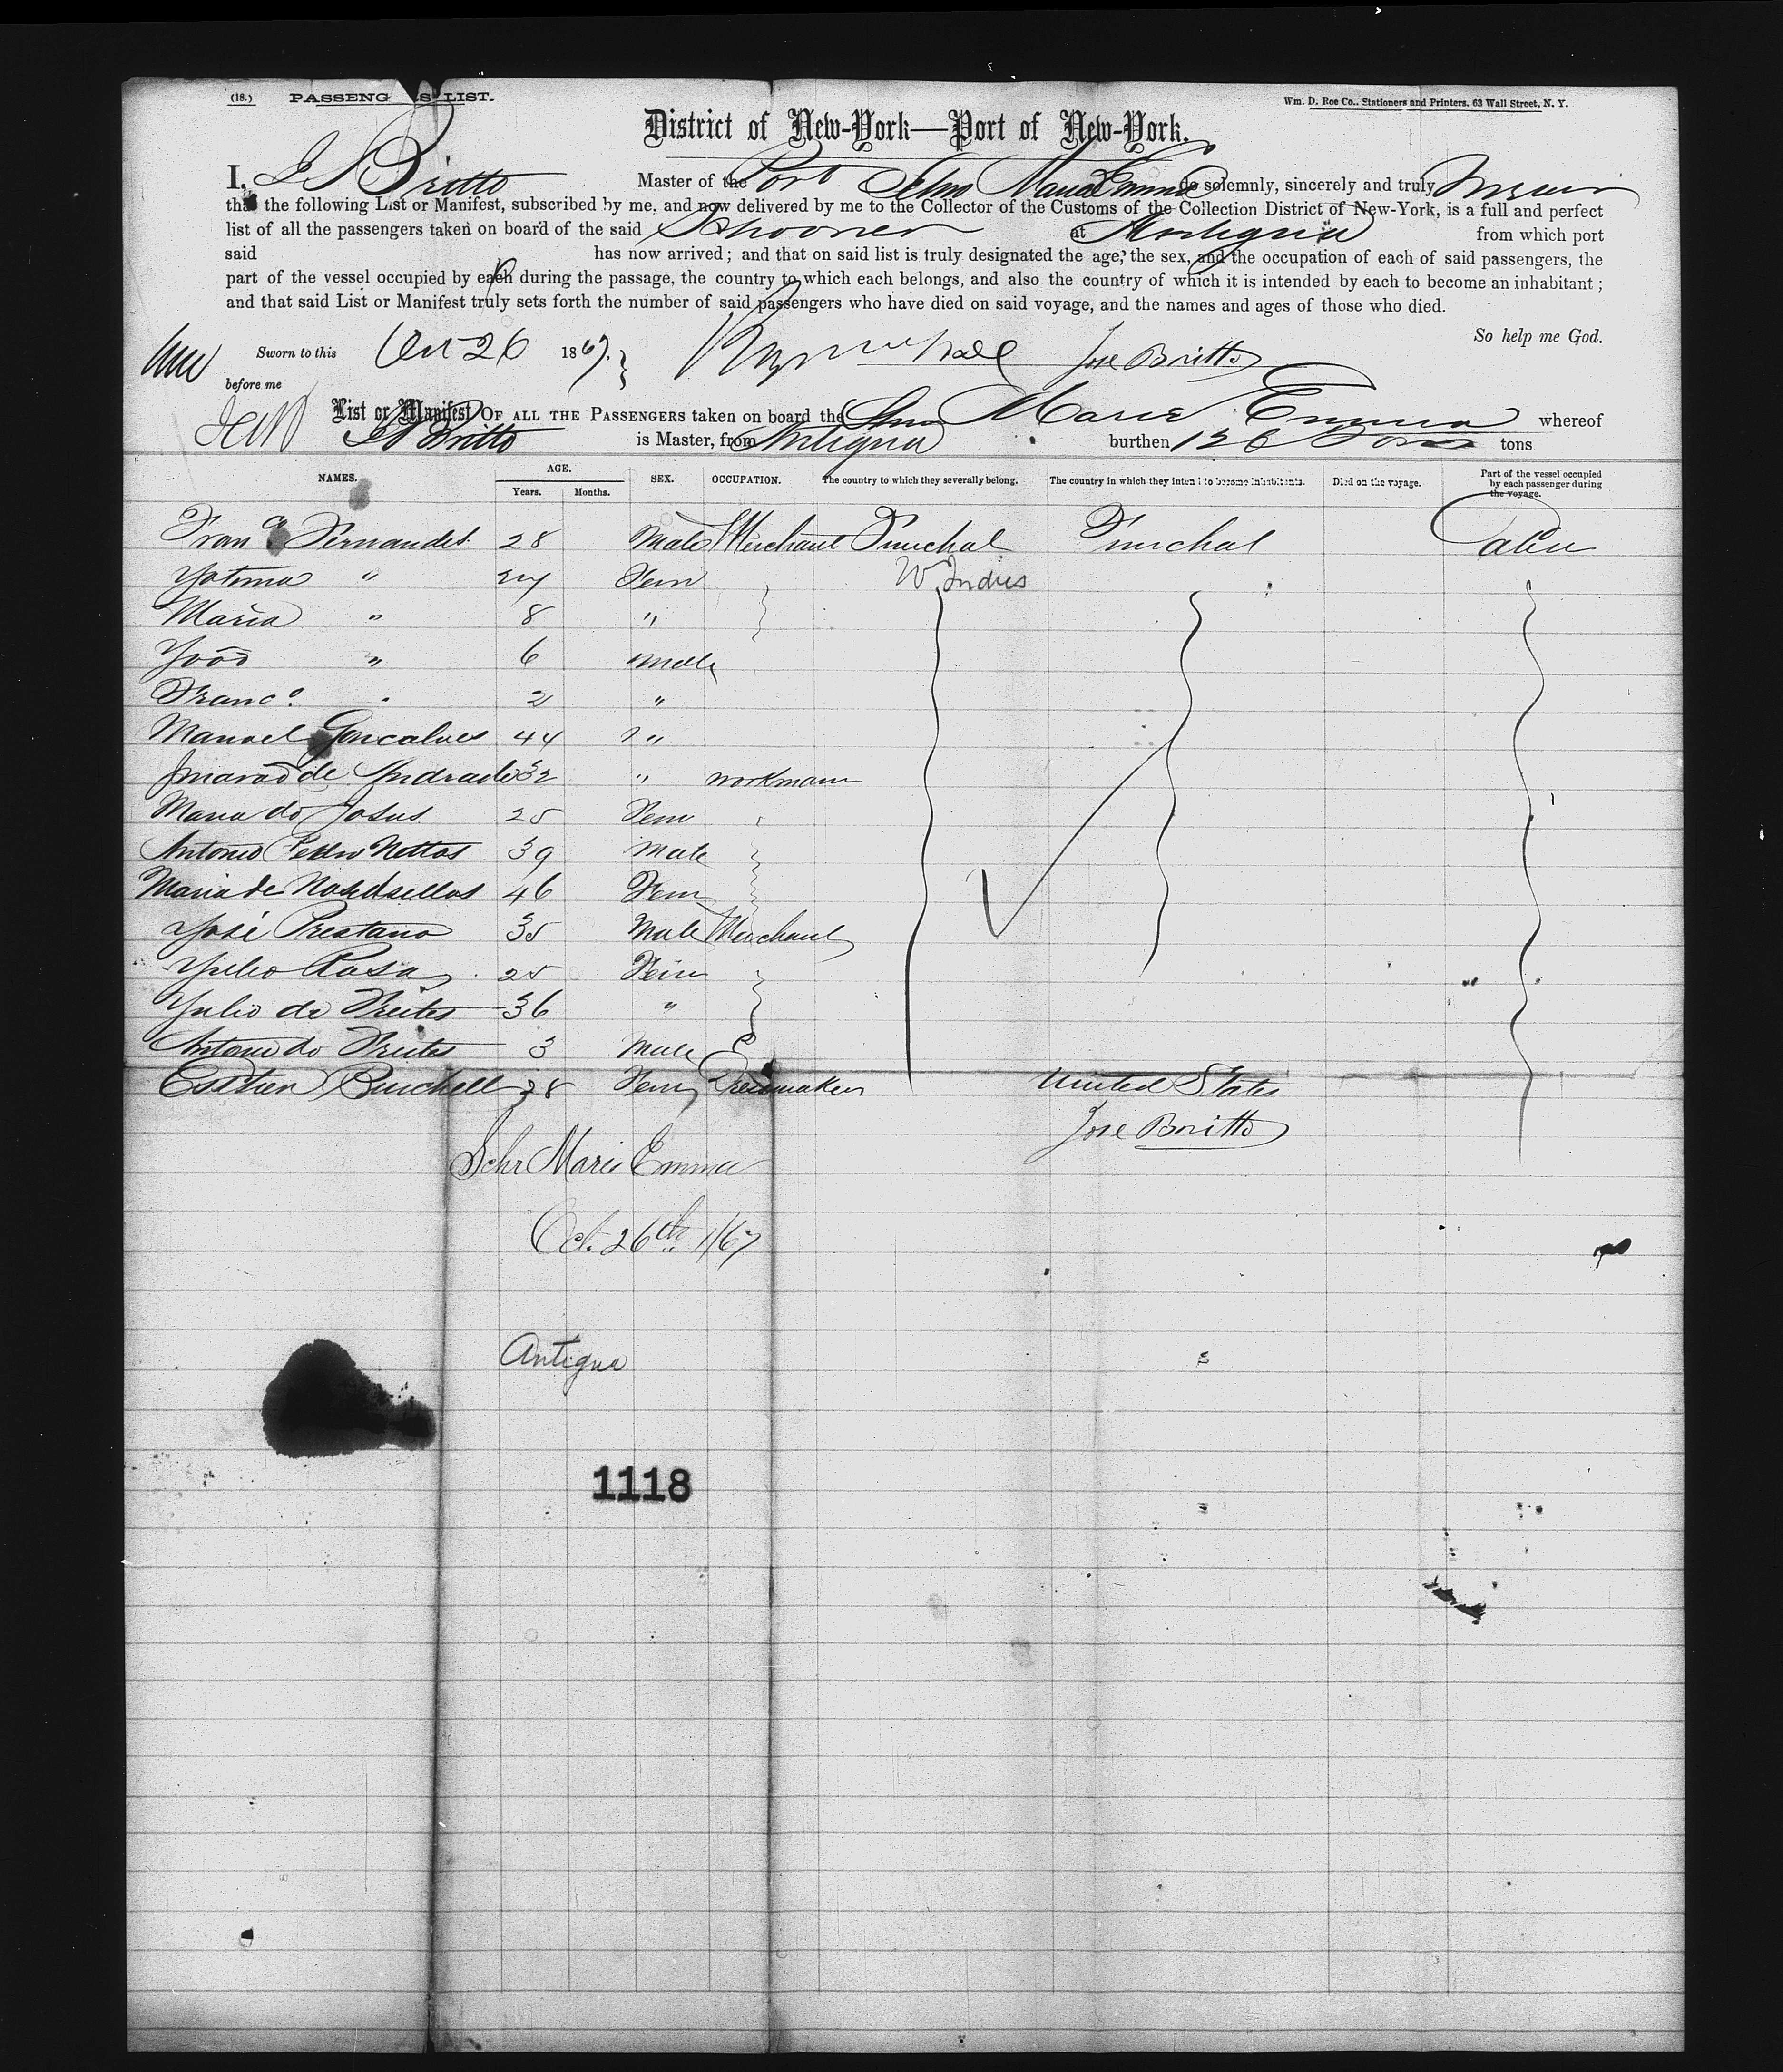 (18.) PASSENG S' LIST.
Wm. D. Roe Co., Stationers and Printers, 63 Wall Street, N. Y.
District of New-York—Port of New-York.
I, J S Britto Master of the Port Schr Maria Emma do solemnly, sincerely and truly swear
that the following List or Manifest, subscribed by me, and now delivered by me to the Collector of the Customs of the Collection District of New-York, is a full and perfect
list of all the passengers taken on board of the said Schooner at Antigua from which port
said has now arrived; and that on said list is truly designated the age, the sex, and the occupation of each of said passengers, the
part of the vessel occupied by each during the passage, the country to which each belongs, and also the country of which it is intended by each to become an inhabitant;
and that said List or Manifest truly sets forth the number of said passengers who have died on said voyage, and the names and ages of those who died.
So help me God.
Sworn to this Oct 26 1867. Jose Britto
before me
List or Manifest OF ALL THE PASSENGERS taken on board the Schr Marie Emma whereof
J S Britto is Master, from Antigua burthen 126 Tons tons
NAMES. AGE. SEX. OCCUPATION. The country to which they severally belong. The country in which they intend to become inhabitants. Died on the voyage. Part of the vessel occupied by each passenger during the voyage.
Years. Months.
Franco Fernandes 28 Male Merchant Funchal Funchal Cabin
" 24 Fem W. Indies
Maria " 8 "
Yoão " 6 male
Franco. " 2 "
Manoel Goncalves 44 "
de Andrade 32 " workmann
Maria do Josus 25 Fem
Antonio Pedro Nottos 39 Male
Maria de 46 Fem
José Prestano 35 Male Merchant
Yulio Rosa 25 Fem
Yulio de Freites 36 "
Antonio do Freites 3 Male
Burchell 28 Fem Dressmaker United States
Jose Britto
Schr Marie Emma
Oct. 26th 1/67
Antigua
1118